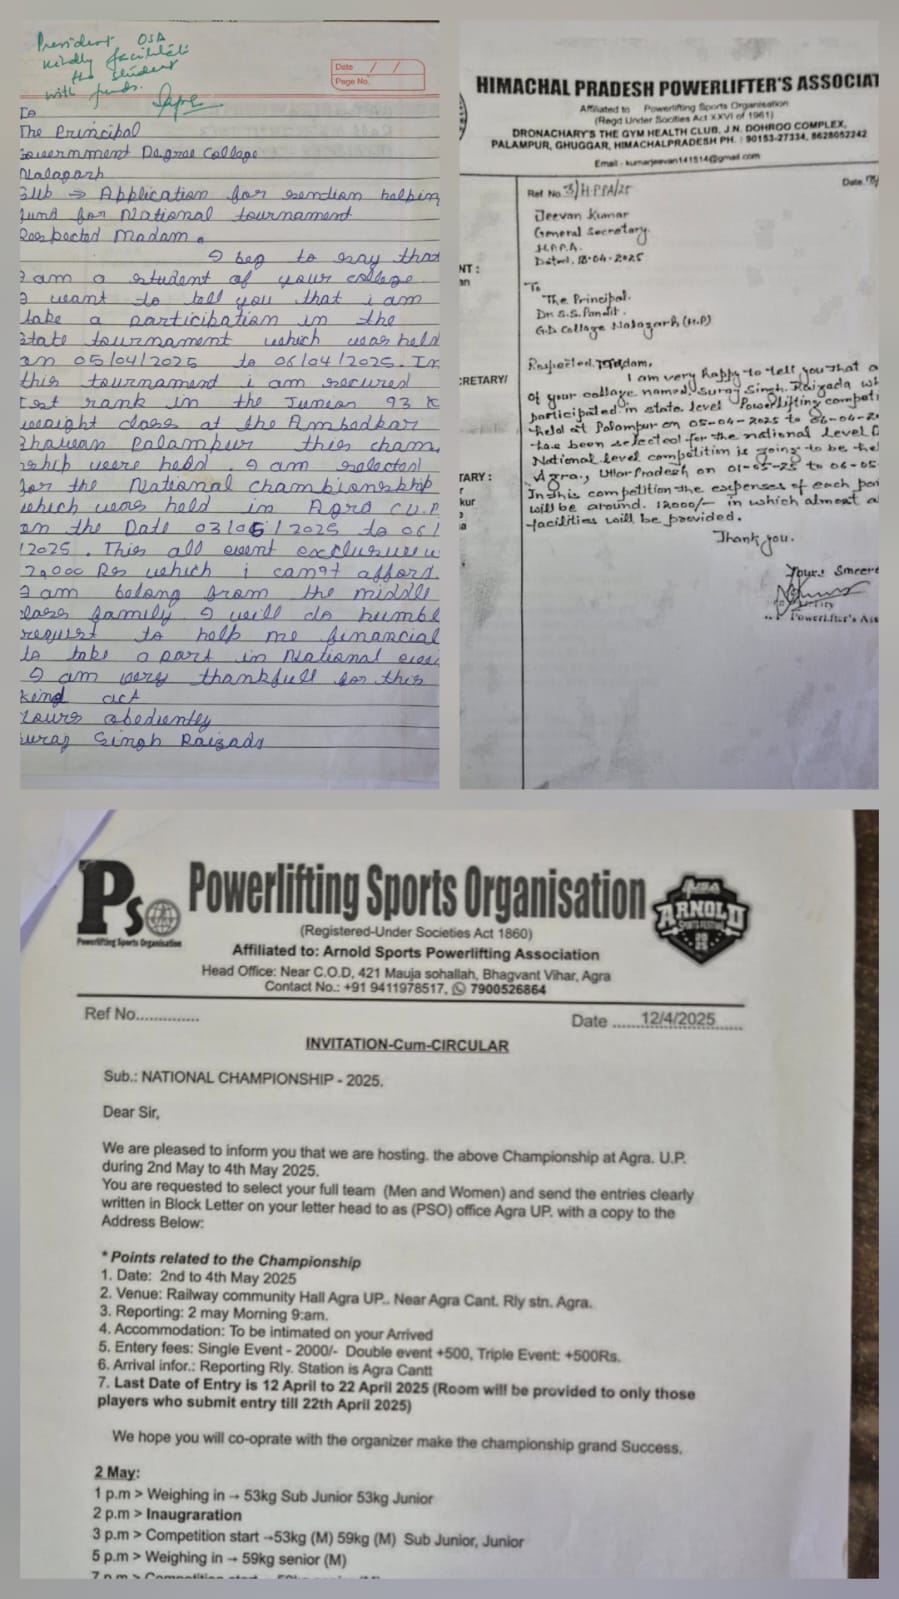 President OSA
kindly facilitate
the student
with funds.
Date / /
Page No.
To
The Principal
Government Degree College
Nalagarh
Sub → Application for sendion helping
fund for National tournament
Respected Madam.
I beg to say that
I am a student of your college
I want to tell you that i am
take a participation in the
State tournament which was held
on 05/04/2025 to 06/04/2025. In
this tournament i am secured
Ist rank in the Junior 93 K
weight class at the Ambedkar
Bhawan Palampur this cham
ship were held. I am selected
for the National championship
which was held in Agra (U.P
on the Date 03/05/2025 to 06/
/2025. This all event
Rs which i can't afford.
I am belong from the middle
class family I will do humbl
request to help me financial
to take a part in National
I am very thankfull for this
kind act
Yours obediently
Suraj Singh Raizada
HIMACHAL PRADESH POWERLIFTER'S ASSOCIAT
Affiliated to Powerlifting Sports Organisation
(Regd Under Socities Act XXVI of 1961)
DRONACHARY'S THE GYM HEALTH CLUB, J.N. DOHROO COMPLEX,
PALAMPUR, GHUGGAR, HIMACHALPRADESH PH. : 90153-27334, 8628052242
Email - kumarjeevan141514@gmail.com
Ref No. 3/H-PPA/25
Date
Jeevan Kumar
General Secretary.
H.P.P.A.
Dated. 18-04-2025
NT :
an
To
The Principal.
Dr. S.S. Pandit.
G.D. College Nalagarh, (H.P)
Respected, Maddam,
CRETARY/
I am very happy to tell you that a
of your collage named, Suraj Singh. Raizada wh
participated in state level Powerlifting competi
held at Palampur on 05-04-2025 to 06-04-2
has been selected for the national level
National level competition is going to be he
TARY :
Agra, Uttar Pradesh on 01-05-25 to 06-05
r
kur
In this competition the expenses of each
will be around. 12000/- in which almost a
facilities will be provided.
Thank you.
Your: Smcere
Powerlifter's Ass
Ps
Powerlifting Sports Organisation
Powerlifting Sports Organisation
ARNOLD
SPORTS FESTIVAL
(Registered-Under Societies Act 1860)
Affiliated to: Arnold Sports Powerlifting Association
Head Office: Near C.O.D, 421 Mauja sohallah, Bhagvant Vihar, Agra
Contact No.: +91 9411978517, 7900526864
Ref No.............
Date .....12/4/2025......
INVITATION-Cum-CIRCULAR
Sub.: NATIONAL CHAMPIONSHIP - 2025.
Dear Sir,
We are pleased to inform you that we are hosting. the above Championship at Agra. U.P.
during 2nd May to 4th May 2025.
You are requested to select your full team (Men and Women) and send the entries clearly
written in Block Letter on your letter head to as (PSO) office Agra UP. with a copy to the
Address Below:
* Points related to the Championship
1. Date: 2nd to 4th May 2025
2. Venue: Railway community Hall Agra UP.. Near Agra Cant. Rly stn. Agra.
3. Reporting: 2 may Morning 9:am.
4. Accommodation: To be intimated on your Arrived
5. Entery fees: Single Event - 2000/- Double event +500, Triple Event: +500Rs.
6. Arrival infor.: Reporting Rly. Station is Agra Cantt
7. Last Date of Entry is 12 April to 22 April 2025 (Room will be provided to only those
players who submit entry till 22th April 2025)
We hope you will co-oprate with the organizer make the championship grand Success.
2 May:
1 p.m > Weighing in → 53kg Sub Junior 53kg Junior
2 p.m > Inaugraration
3 p.m > Competition start →53kg (M) 59kg (M) Sub Junior, Junior
5 p.m > Weighing in → 59kg senior (M)